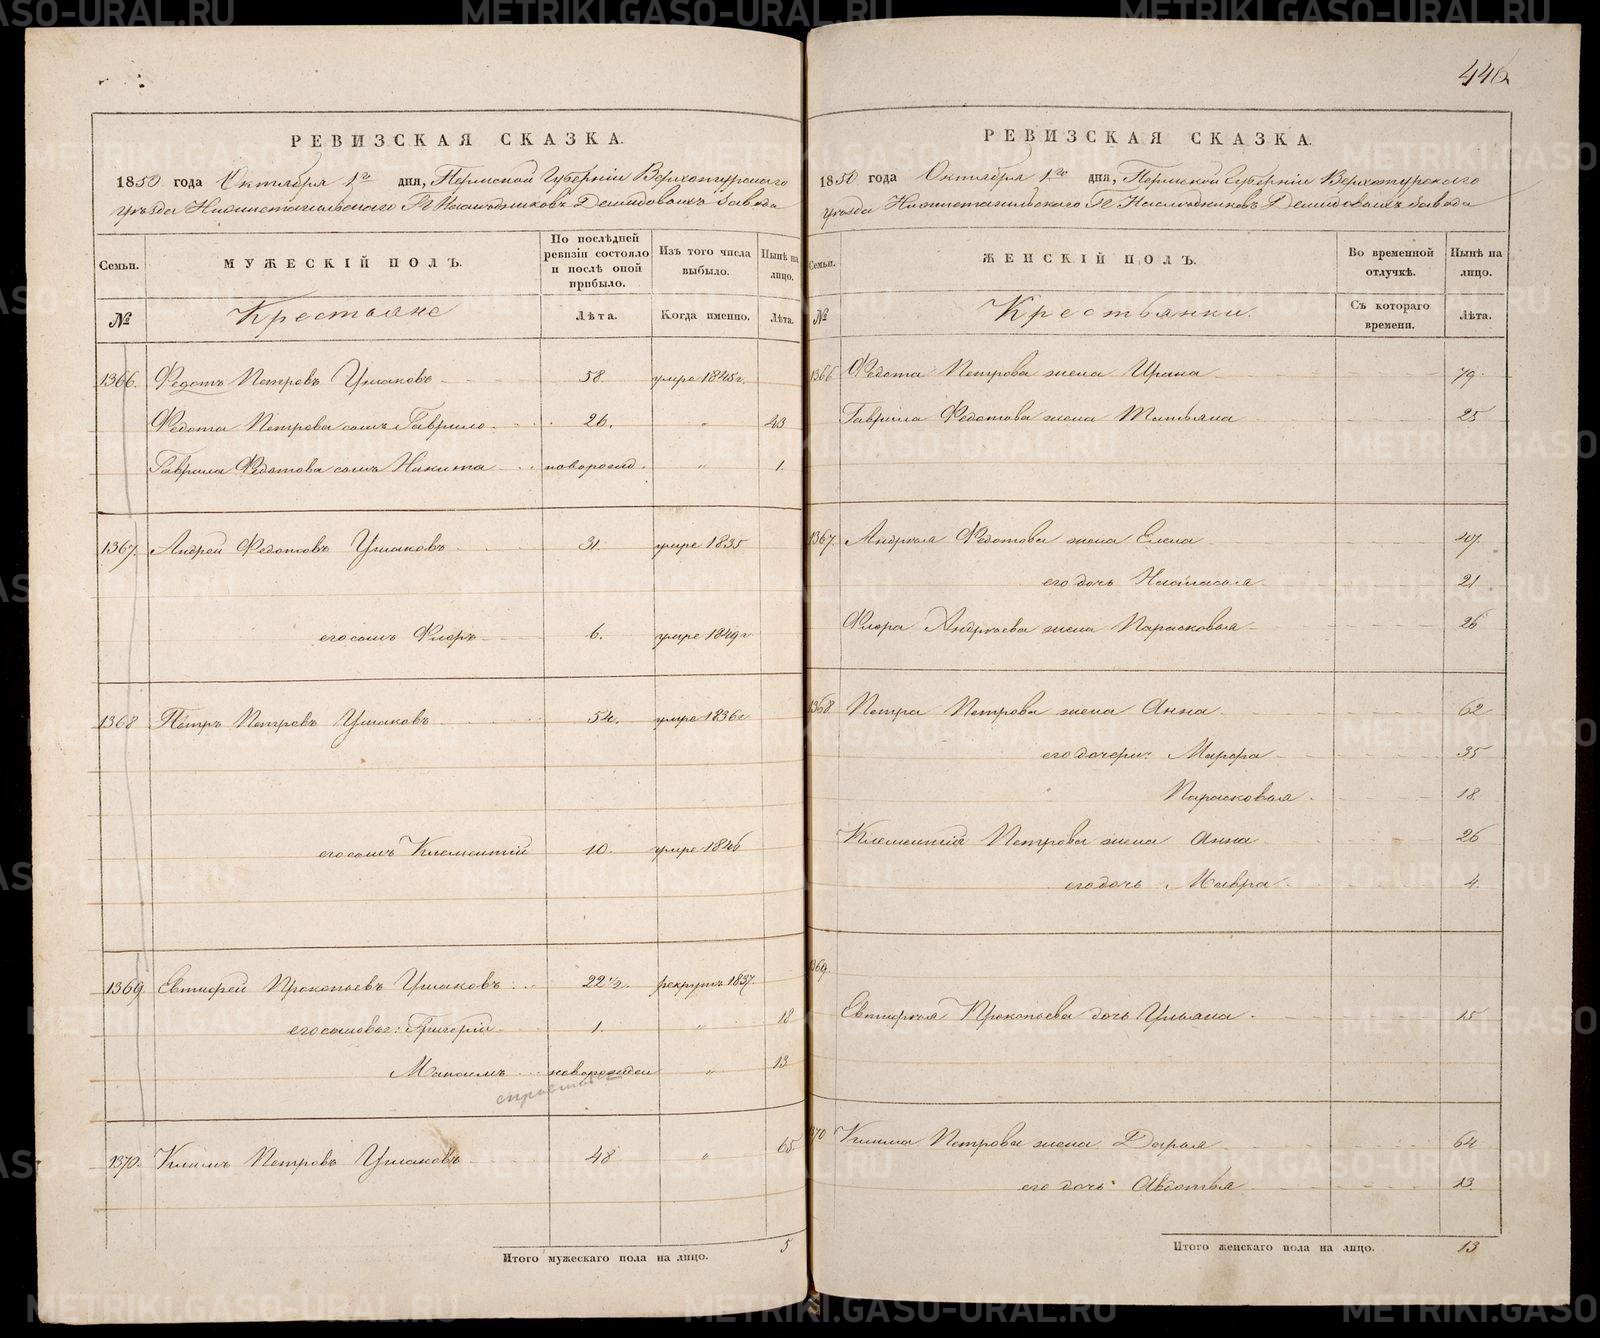 446
РЕВИЗСКАЯ СКАЗКА.
1850 года Октября 1го дня, Пермской Губернiи Верхотурскаго
уѣзда Нижнетагильскаго Гг Наслѣдниковъ Демидовыхъ завода
Семьи. МУЖЕСКIЙ ПОЛЪ. По послѣдней ревизiи состояло и послѣ оной прибыло. Изъ того числа выбыло. Нынѣ на лицо.
№ Крестьяне Лѣта. Когда именно. Лѣта.
1366. Федотъ Петровъ Ушаковъ 58. умре 1845г.
Федота Петрова сынъ Гаврило 26. " 43
Гаврила Федотова сынъ Никита новорожд. " 1.
1367. Андрей Федотовъ Ушаковъ 31. умре 1835
его сынъ Флоръ 6. умре 1849г
1368 Петръ Петровъ Ушаковъ 54. умре 1836г
его сынъ Клементiй 10. умре 1846
1369 Евтифей Прокопьевъ Ушаковъ 22 1/2. рекрутъ 1837.
его сыновья: Григорiй 1. " 18
Максимъ новорожден " 13
1370. Климъ Петровъ Ушаковъ 48 " 65
Итого мужескаго пола на лицо. 5
РЕВИЗСКАЯ СКАЗКА.
1850 года Октября 1го дня, Пермской Губернiи Верхотурскаго
уѣзда Нижнетагильскаго Гг Наслѣдниковъ Демидовыхъ завода
Семьи. ЖЕНСКIЙ ПОЛЪ. Во временной отлучкѣ. Нынѣ на лицо.
№ Крестьянки. Съ котораго времени. Лѣта.
1366 Федота Петрова жена Ирина 79.
Гаврила Федотова жена Татьяна 25
1367. Андрѣя Федотова жена Елена 47.
его дочь Настасья 21
Флора Андрѣева жена Парасковья 26
1368 Петра Петрова жена Анна 62
его дочери: Марфа 35
Парасковья 18.
Клементiя Петрова жена Анна 26
его дочь Мавра 4.
1369.
Евтифѣя Прокопьева дочь Ульяна 15
1370 Клима Петрова жена Дарья 64
его дочь Авдотья 13.
Итого женскаго пола на лицо. 13
METRIKI.GASO-URAL.RU